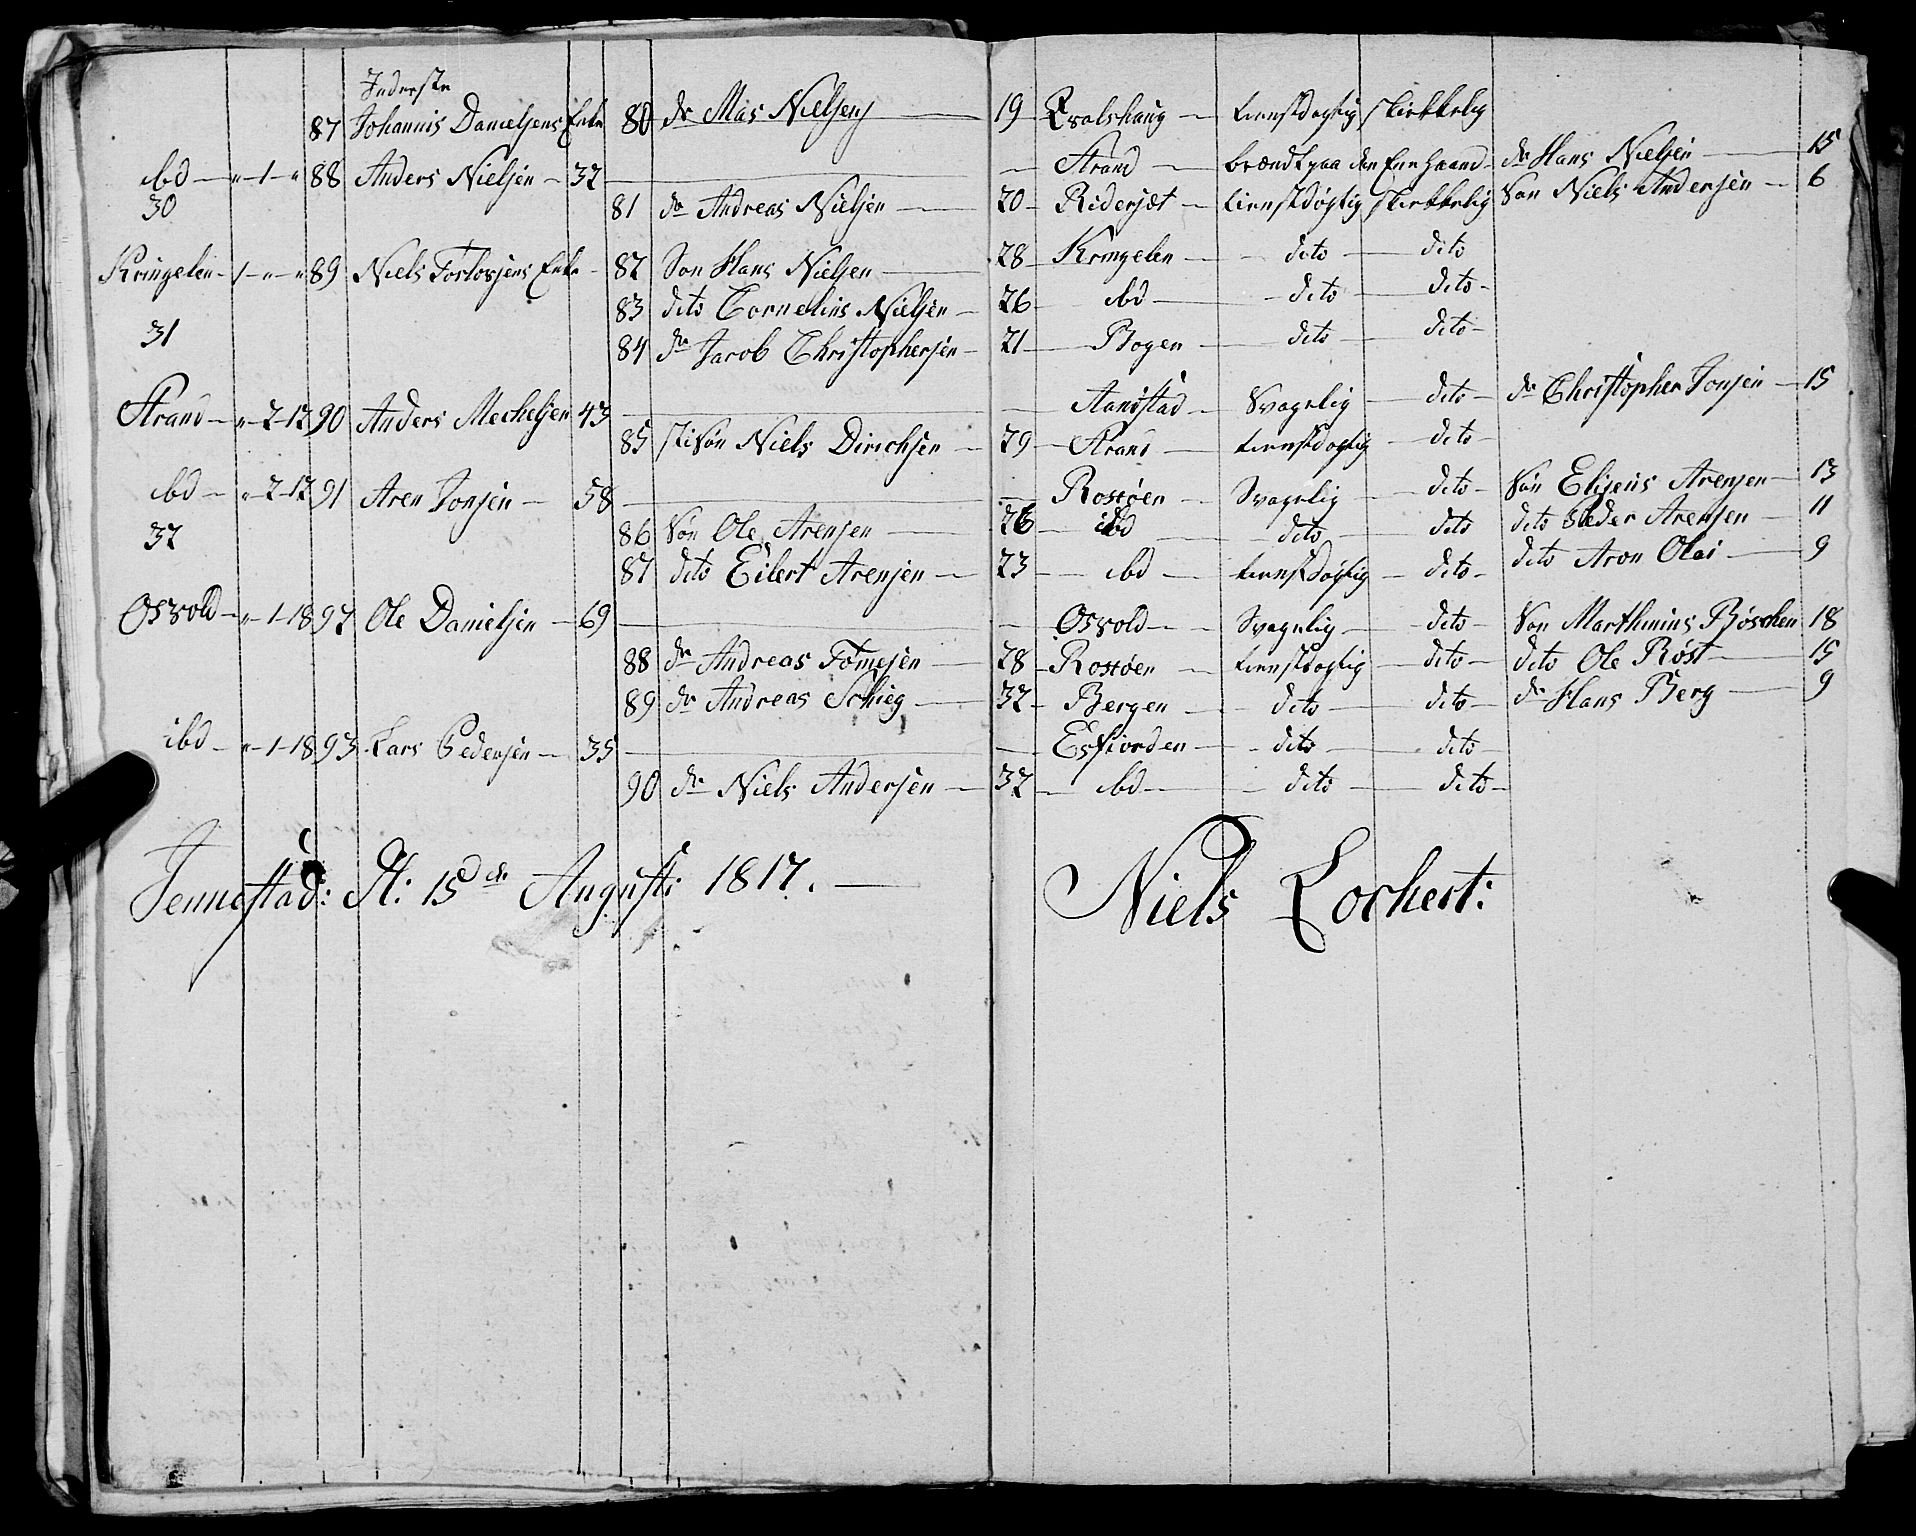 Inderste
87 Johannis Danielsens Enke 80 dr Mas Nielsen — 19 Qvalshaug — tienstdøgtig skikkelig
ibd — " — 1 — " 88 Anders Nielsen — 37 — Strand — brændt paa den Ene Haand — dr Hans Nielsen — 15
30 81 dr Andreas Nielsen — 20 — Ridersæt — tienstdøgtig skikkelig Søn Niels Andersen — 6
Kringelen — 1 — " — " 89 Niels Torlovsens Enke — 82 Søn Hans Nielsen — 28 — Kringelen — dito — dito
83 dito Cornelius Nielsen — 26 — ibd — dito — dito
31 84 dr Jacob Christophersen — 21 — Bogen — dito — dito
Strand — " — 2 — 12 90 Anders Mechelsen 43 — Aanstad — Svagelig — dito — dr Christopher Jonsen — 15
85 stisøn Niels Dirichsen — 29 — Strand — tienstdøgtig — dito
ibd — " — 2 — 12 91 Aren Jonsen — 58 — Rossøen — Svagelig — dito — Søn Eliseus Arensen — 13
32 86 Søn Ole Arensen — 26 — ibd — dito — dito dito Peder Arensen — 11
87 dito Eilert Arensen — 23 — ibd — tienstdøgtig — dito — dito Aron Olai — 9
Osvold — " — 1 — 18 92 Ole Danielsen — 69 — Osvold — Svagelig — dito — Søn Marthinus Bøschen 18
88 dr Andreas Tomesen — 28 — Rossøen — tienstdøgtig — dito — dito Ole Røst — 15
89 dr Andreas Schieg — 32 — Bergen — dito — dito — dr Hans Berg — 9
ibd — " — 1 — 18 93 Lars Pedersen — 35 — Esfiorden — dito — dito
90 dr Niels Andersen — 32 — ibd — dito — dito
Jennestad: d: 15de Augusti 1817. — Niels Lockert: